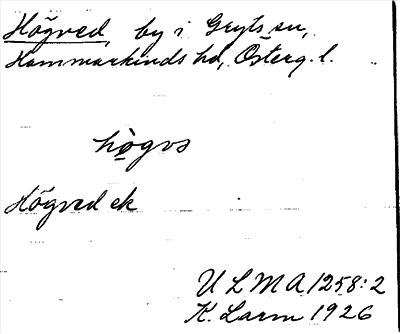 Högved, by i Gryts sn,
Hammarkinds hd, Österg. l.
högvs
Högved ek
ULMA 1258:2
K. Larm 1926